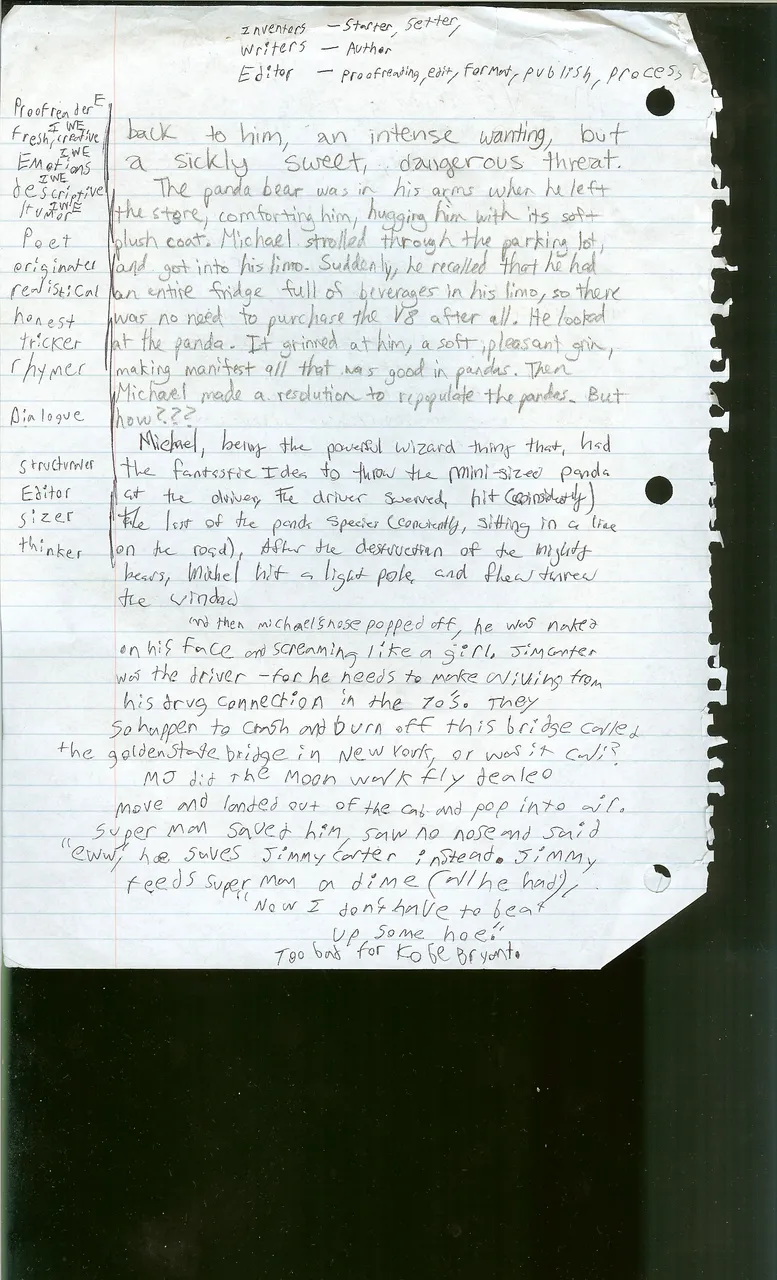 Inventors - Starter, Setter,
Writers - Author
Editor - Proofreading, edit, format, publish, process
Proofreader E
I WE
Fresh, creative
I, WE
Emotions
I WE
descriptive
I WE
Humor
Poet
originater
realistical
honest
tricker
rhymer
Dialogue
Structurner
Editor
sizer
thinker
back to him, an intense wanting, but
a sickly sweet, dangerous threat.
The panda bear was in his arms when he left
the store, comforting him, hugging him with its soft
plush coat. Michael strolled through the parking lot,
and got into his limo. Suddenly, he recalled that he had
an entire fridge full of beverages in his limo, so there
was no need to purchase the V8 after all. He looked
at the panda. It grinned at him, a soft, pleasant grin,
making manifest all that was good in pandas. Then
Michael made a resolution to repopulate the pandas. But
how???
Michael, being the powerful wizard thing that, had
the fantastic Idea to throw the mini-sized panda
at the driver, The driver swerved, hit
the last of the panda species (conviently, sitting in a line
on the road), After the destruction of the mighty
bears, Michel hit a light pole and flew threw
the window
and then michael's nose popped off, he was naked
on his face and screaming like a girl. Jim carter
was the driver - for he needs to make aliving from
his drug connection in the 70's. They
so happen to crash and burn off this bridge called
the golden State bridge in New York, or was it Cali?
MJ did the Moon walk fly dealeo
move and landed out of the cab and pop into air.
Super man saved him, saw no nose and said
"eww," he saves Jimmy Carter instead. Jimmy
feeds Super Man a dime (all he had),
"Now I don't have to beat
up some hoe."
Too bad for Kobe Bryant.